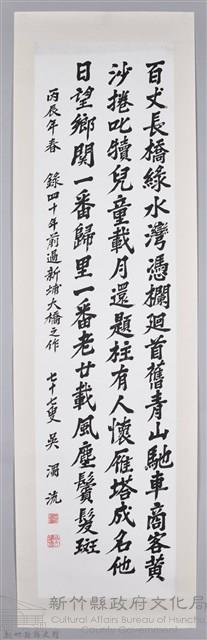 百丈長橋綠水灣憑欄迴首舊青山馳車商客黃
沙捲叱犢兒童載月還題柱有人懷雁塔成名他
日望鄉關一番歸里一番老廿載風塵鬢髮斑
丙辰年春 錄四十年前過新埔大橋之作 七十七叟 吳濁流
新竹縣政府文化局
Cultural Affairs Bureau of Hsinchu
County Government